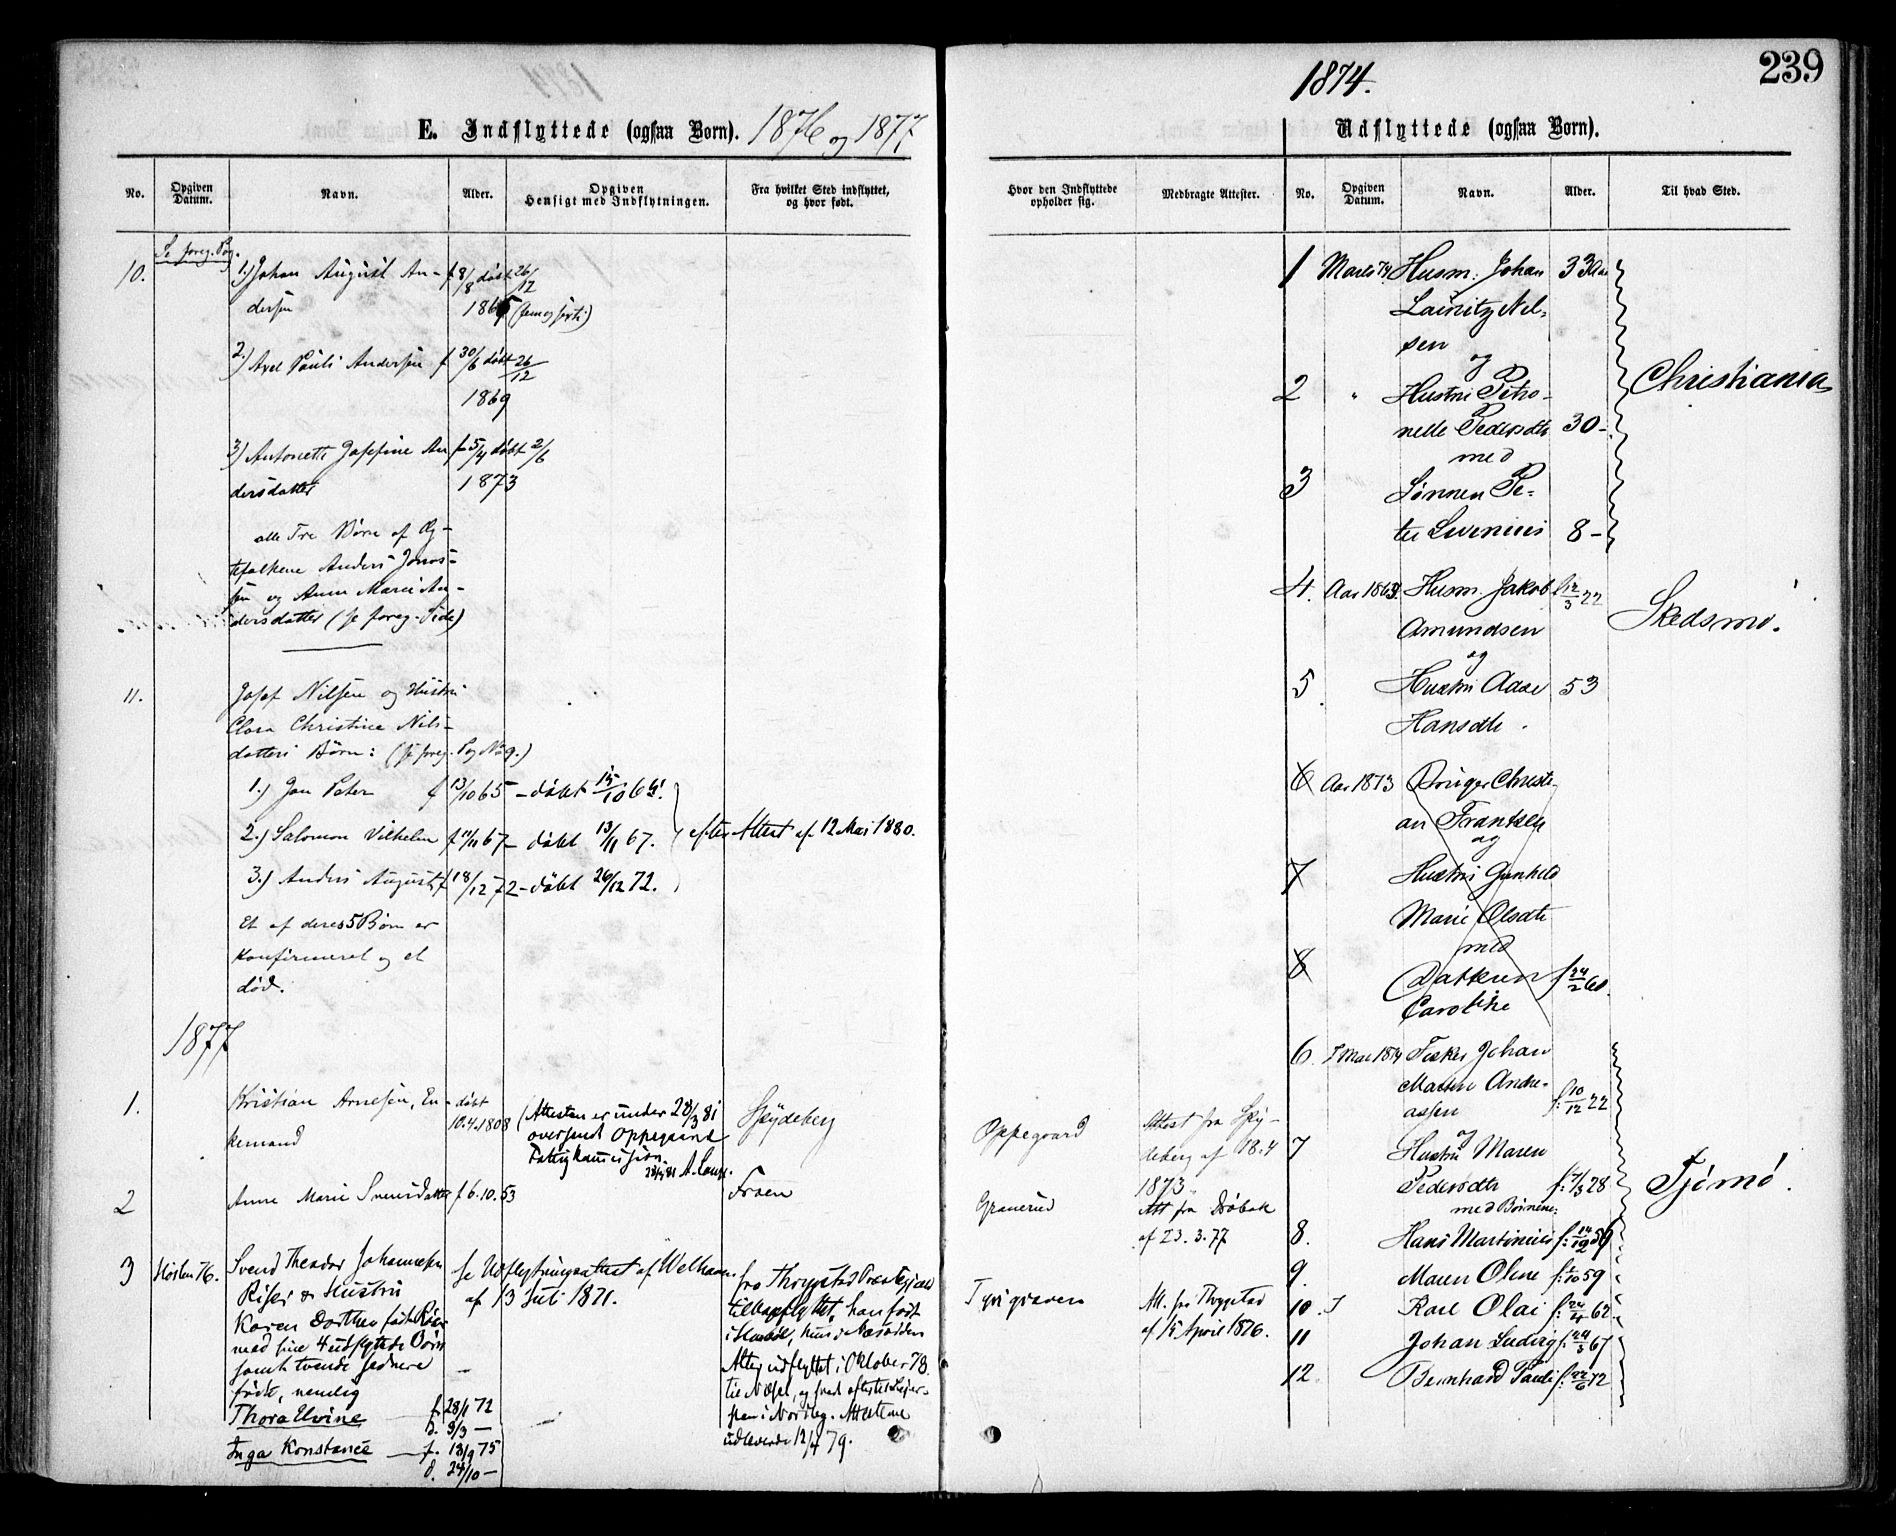 239
1874.
E. Indflyttede (ogsaa Børn). 1876 og 1877
Udflyttede (ogsaa Børn).
No.
Opgiven Datum.
Navn.
Alder.
Opgiven Hensigt med Indflytningen.
Fra hvilket Sted indflyttet, og hvor født.
Hvor den Indflyttede opholder sig.
Medbragte Attester.
No.
Opgiven Datum.
Navn.
Alder.
Til hvad Sted.
Se foreg. Pag.
10. 1.) Johan August An- f 8/8 døbt 26/12
dersen 1865 (femogsexti)
2.) Axel Pauli Andersen f 30/6 døbt 26/12
1869
3) Antonette Josefine An f 5/4 døbt 2/6
dersdatter 1873
alle Tre Børn af Æg-
tefolkene Anders Jonas-
sen og Anne Marie An-
dersdatter (se foreg. Side)
11. Josef Nilsen og Hustru
Clara Christine Nils-
datters Børn: (se foreg. Pag No 9.)
1.) Jon Peter f 13/10 65 - døbt 15/10 65.
2.) Salomon Vilhelm f 11/11 67 - døbt 13/11 67. efter Attest af 12 Mai 1880.
3.) Anders August f 18/12 72 - døbt 26/12 72.
Et af deres 5 Børn er
konfirmeret og et
død.
1877
1. Kristian Arnesen, En- døbt (Attesten er under 28/3 81 Spydeberg Oppegaard Attest fra Spy-
kemand 10.4.1808 oversendt Oppegaard deberg af 18.4
Fattigkommission. 1873
28/3 81
2 Anne Marie Svensdatter f 6.10.53 Froen Graverud Att fra Drøbak
af 23.3.77
3 Høsten 76. Svend Theodor Johannesen Se Udflytningsattest af fra Thrygstad Præstegjæld Tyrigraven Att. fra Thrygstad
Riser & Hustru af 13 Juli 1871. tilbageflyttet, han født af 15 April 1876.
Karen Dorthea født
med sine 4 udflyttede Børn
samt tvende sednere Atter udflyttet i Oktober 78
født, nemlig
Thora Elvine f. 28/1 72
d. 3/3 -
Inga Konstance f. 13/9 75 udleverede 12/4 79.
d. 24/10 -
1 Marts 74 Husm. Johan 33 Aar
Lauritz Nil-
sen
og
2 " Hustru Petro-
nelle Pedersdtr 30 -
med
3 Sønnen Pe-
ter Severinus 8 -
Christiania
4. Aar 1869. Husm. Jakob f 12/3 22
Amundsen
og
5. Hustru Aase 53
Hansdtr.
Skedsmo.
6 Aar 1873 Bruger Christi-
an Frantzen
og
7 Hustru Gunhild
Marie Olsdtr
med
8 Datteren f 24/2 60.
Caroline
6. I Mai 1874 Fisker Johan
Martin Andre-
assen f. 10/12 22
og
7 Hustru Maren
Pedersdtr f. 7/3 28
med Børnene:
8. Hans Martinius f. 14/12 56
9. Maren Oline f. 2/10 59
10. Karl Olai f. 24/4 62
11 Johan Ludvig f. 24/3 67
12. Bernhard Pauli f. 22/6 72
Tjømø.